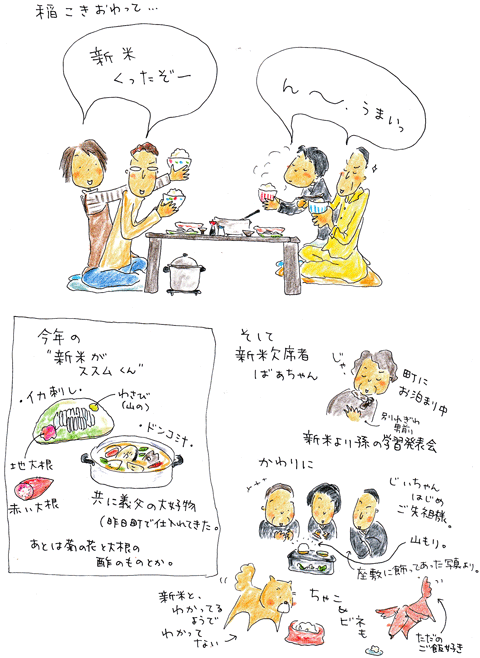 稲こきおわって…
新米
くったぞー
ん〜、うまいっ
今年の
"新米が
ススムくん"
・イカ刺し・
わさび
(山の)
・ドンコ汁・
地大根
赤い大根
共に義父の大好物
(昨日町で仕入れてきた。
あとは菊の花と大根の
酢のものとか。
そして
新米欠席者
ばぁちゃん
じゃ
町に
お泊まり中
別れぎわ
新米より孫の学習発表会
かわりに
じいちゃん
はじめ
ご先祖様。
山もり。
座敷に飾ってあった写真より。
新米と、
わかってる
ようで
わかって
ない
ちゃこ
&
ビネ
も
ただの
ご飯好き